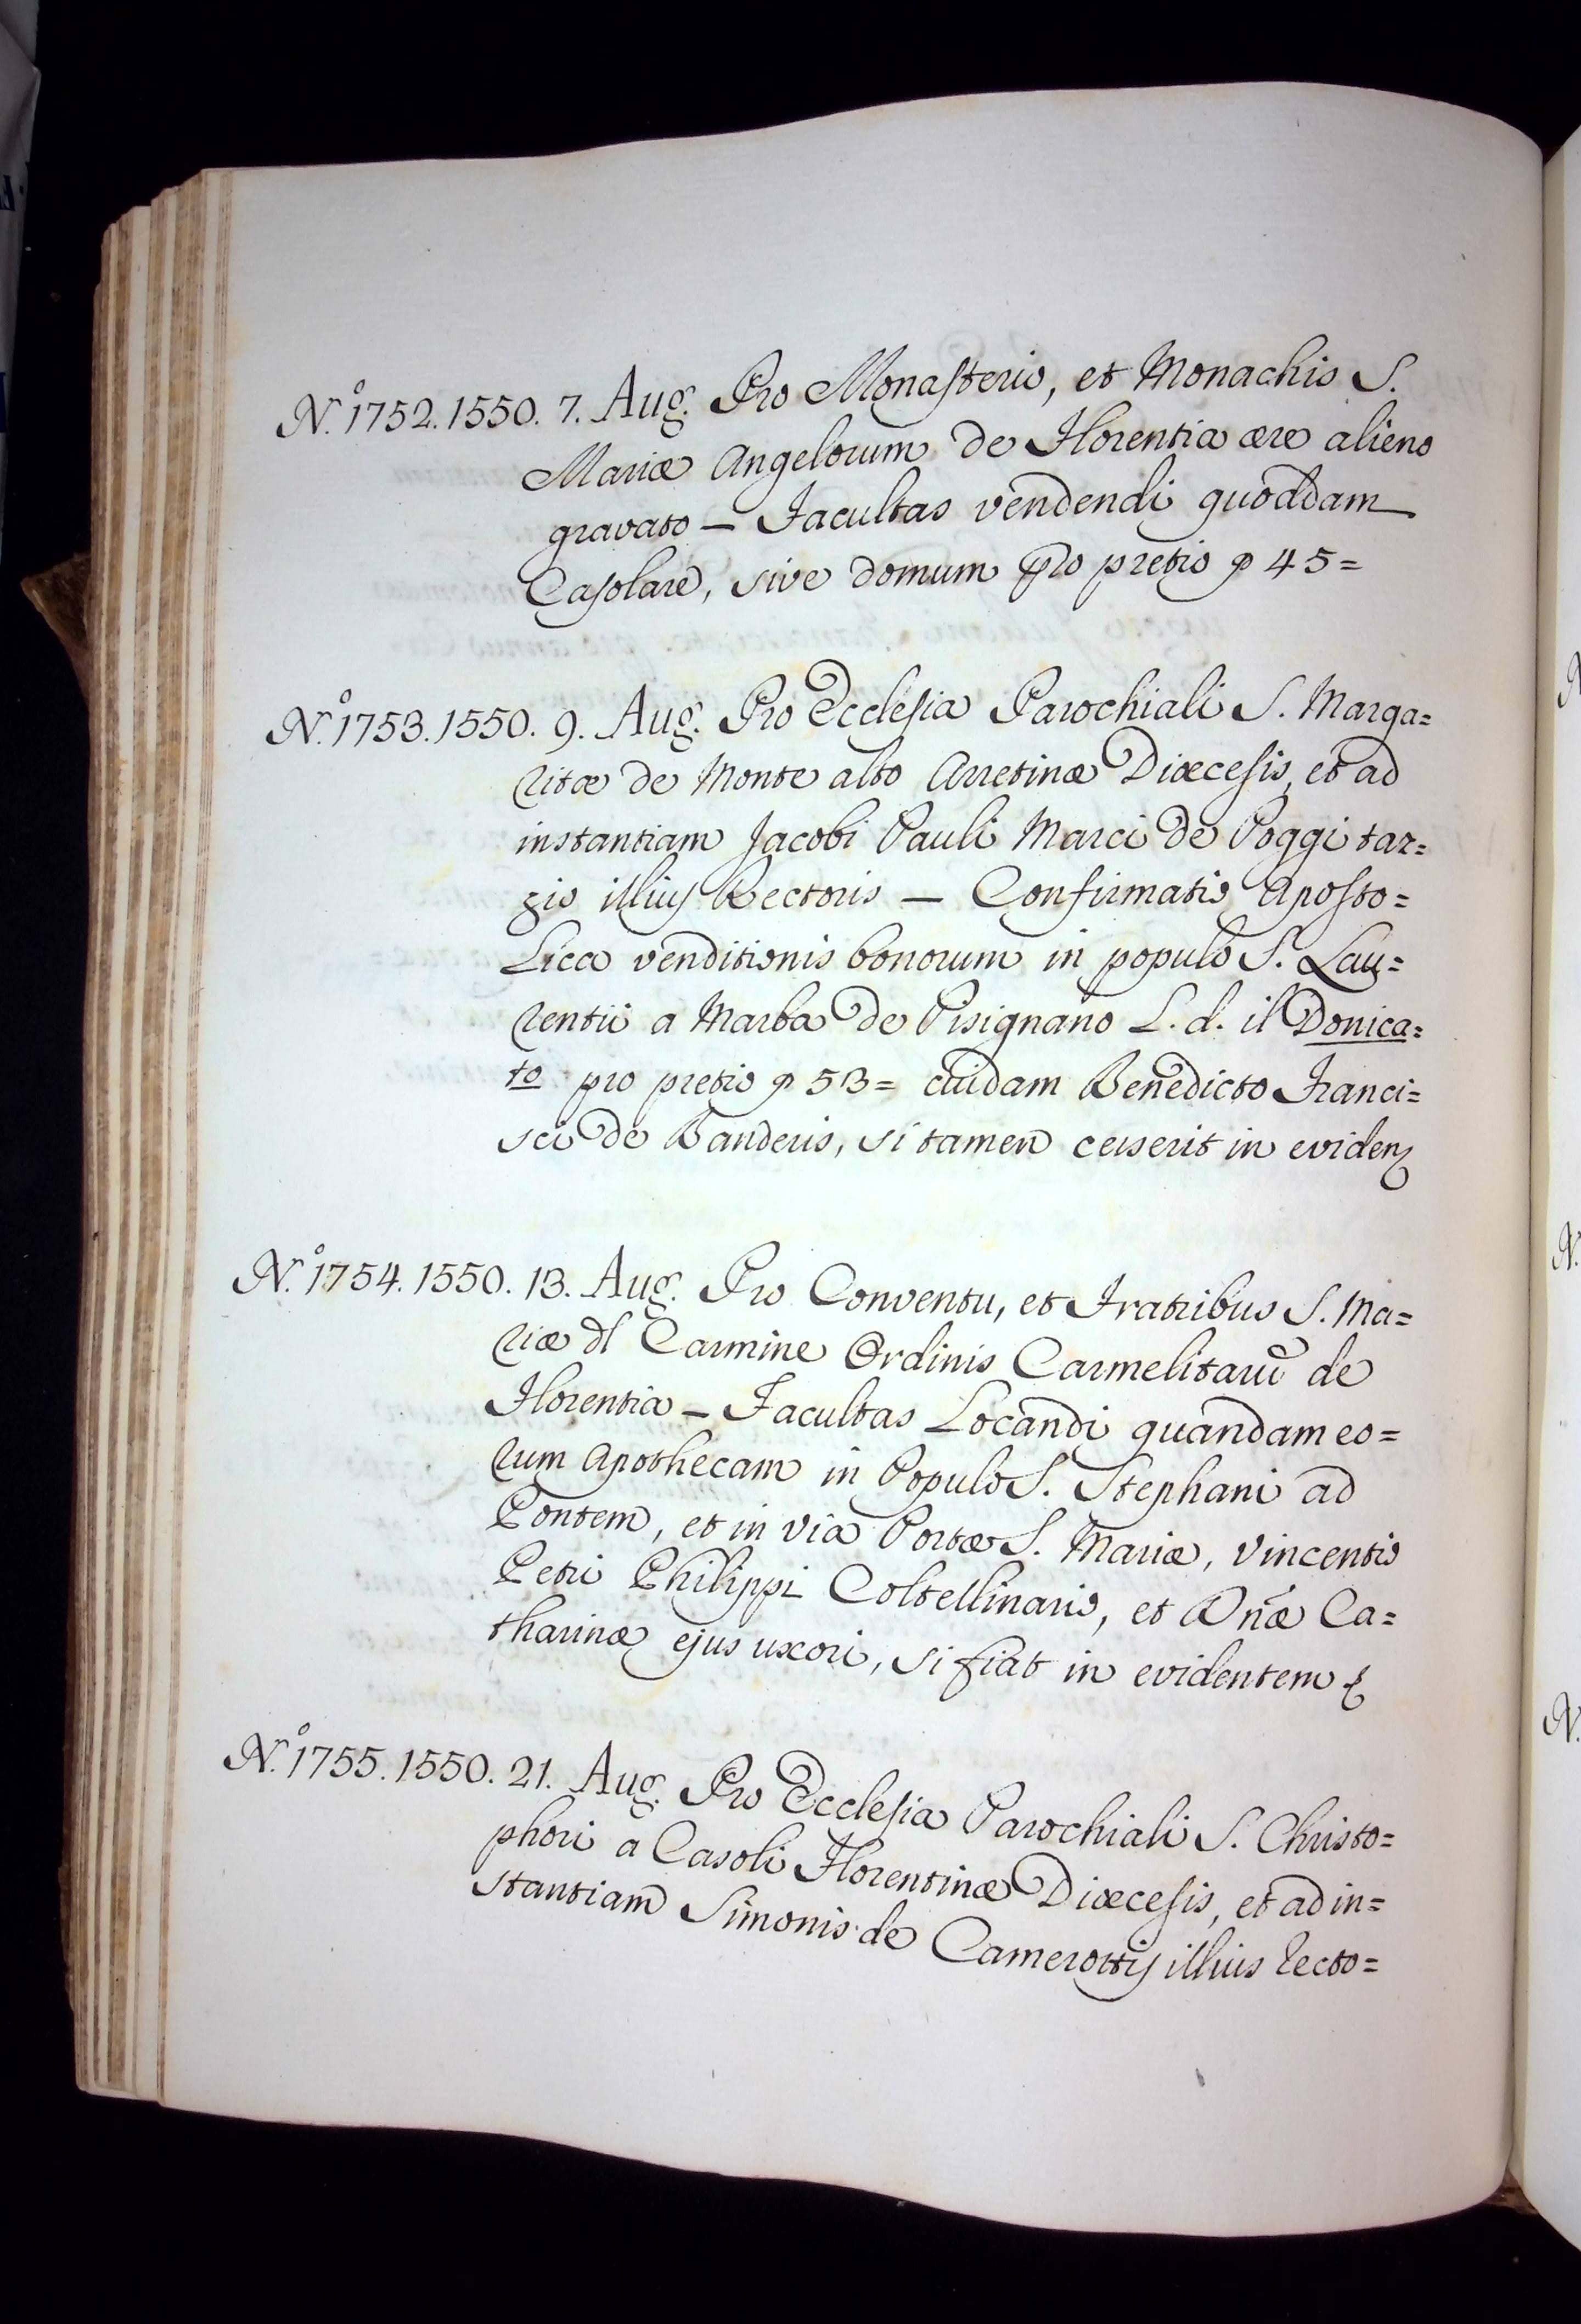 N.º 1752. 1550. 7. Aug. Pro Monasterio, et Monachis S.
Mariæ Angelorum de Florentia ære alieno
gravato – Facultas vendendi quoddam
Casolare, sive domum pro pretio 45=
N.º 1753. 1550. 9. Aug. Pro Ecclesia Parochiali S. Marga=
ritæ de Monte alto Arretinæ Diœcesis, et ad
instantiam Jacobi Pauli Marci de Poggi tar=
gio illius Rectoris – Confirmatio Aposto=
Lica venditionis bonorum in populo S. Lau=
rentii a Marba de Pisignano L. d. il Donica=
to pro pretio 53= cuidam Benedicto Franci=
sci de Banderis, si tamen cesserit in eviden
N.º 1754. 1550. 13. Aug. Pro Conventu, et Fratribus S. Ma=
riæ dl Carmine Ordinis Carmelitarū de
Florentia – Facultas Locandi quandam eo=
rum Apothecam in Populo S. Stephani ad
Pontem, et in via Portæ S. Mariæ, Vincentio
Petri Philippi Coltellinario, et Dnæ Ca=
tharinæ ejus uxori, si fiat in evidentem
N.º 1755. 1550. 21. Aug. Pro Ecclesia Parochiali S. Christo=
phori a Casoli Florentinæ Diœcesis, et ad in=
stantiam Simonis de Camerottis illius recto=
N.
N.